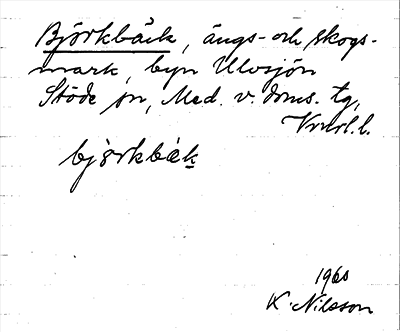 Björkbäck, ängs- och skogs-
mark, byn Ulvsjön
Stöde sn, Med. v. doms. tg,
Vnrl. l.
björkbäk
1960
K. Nilsson